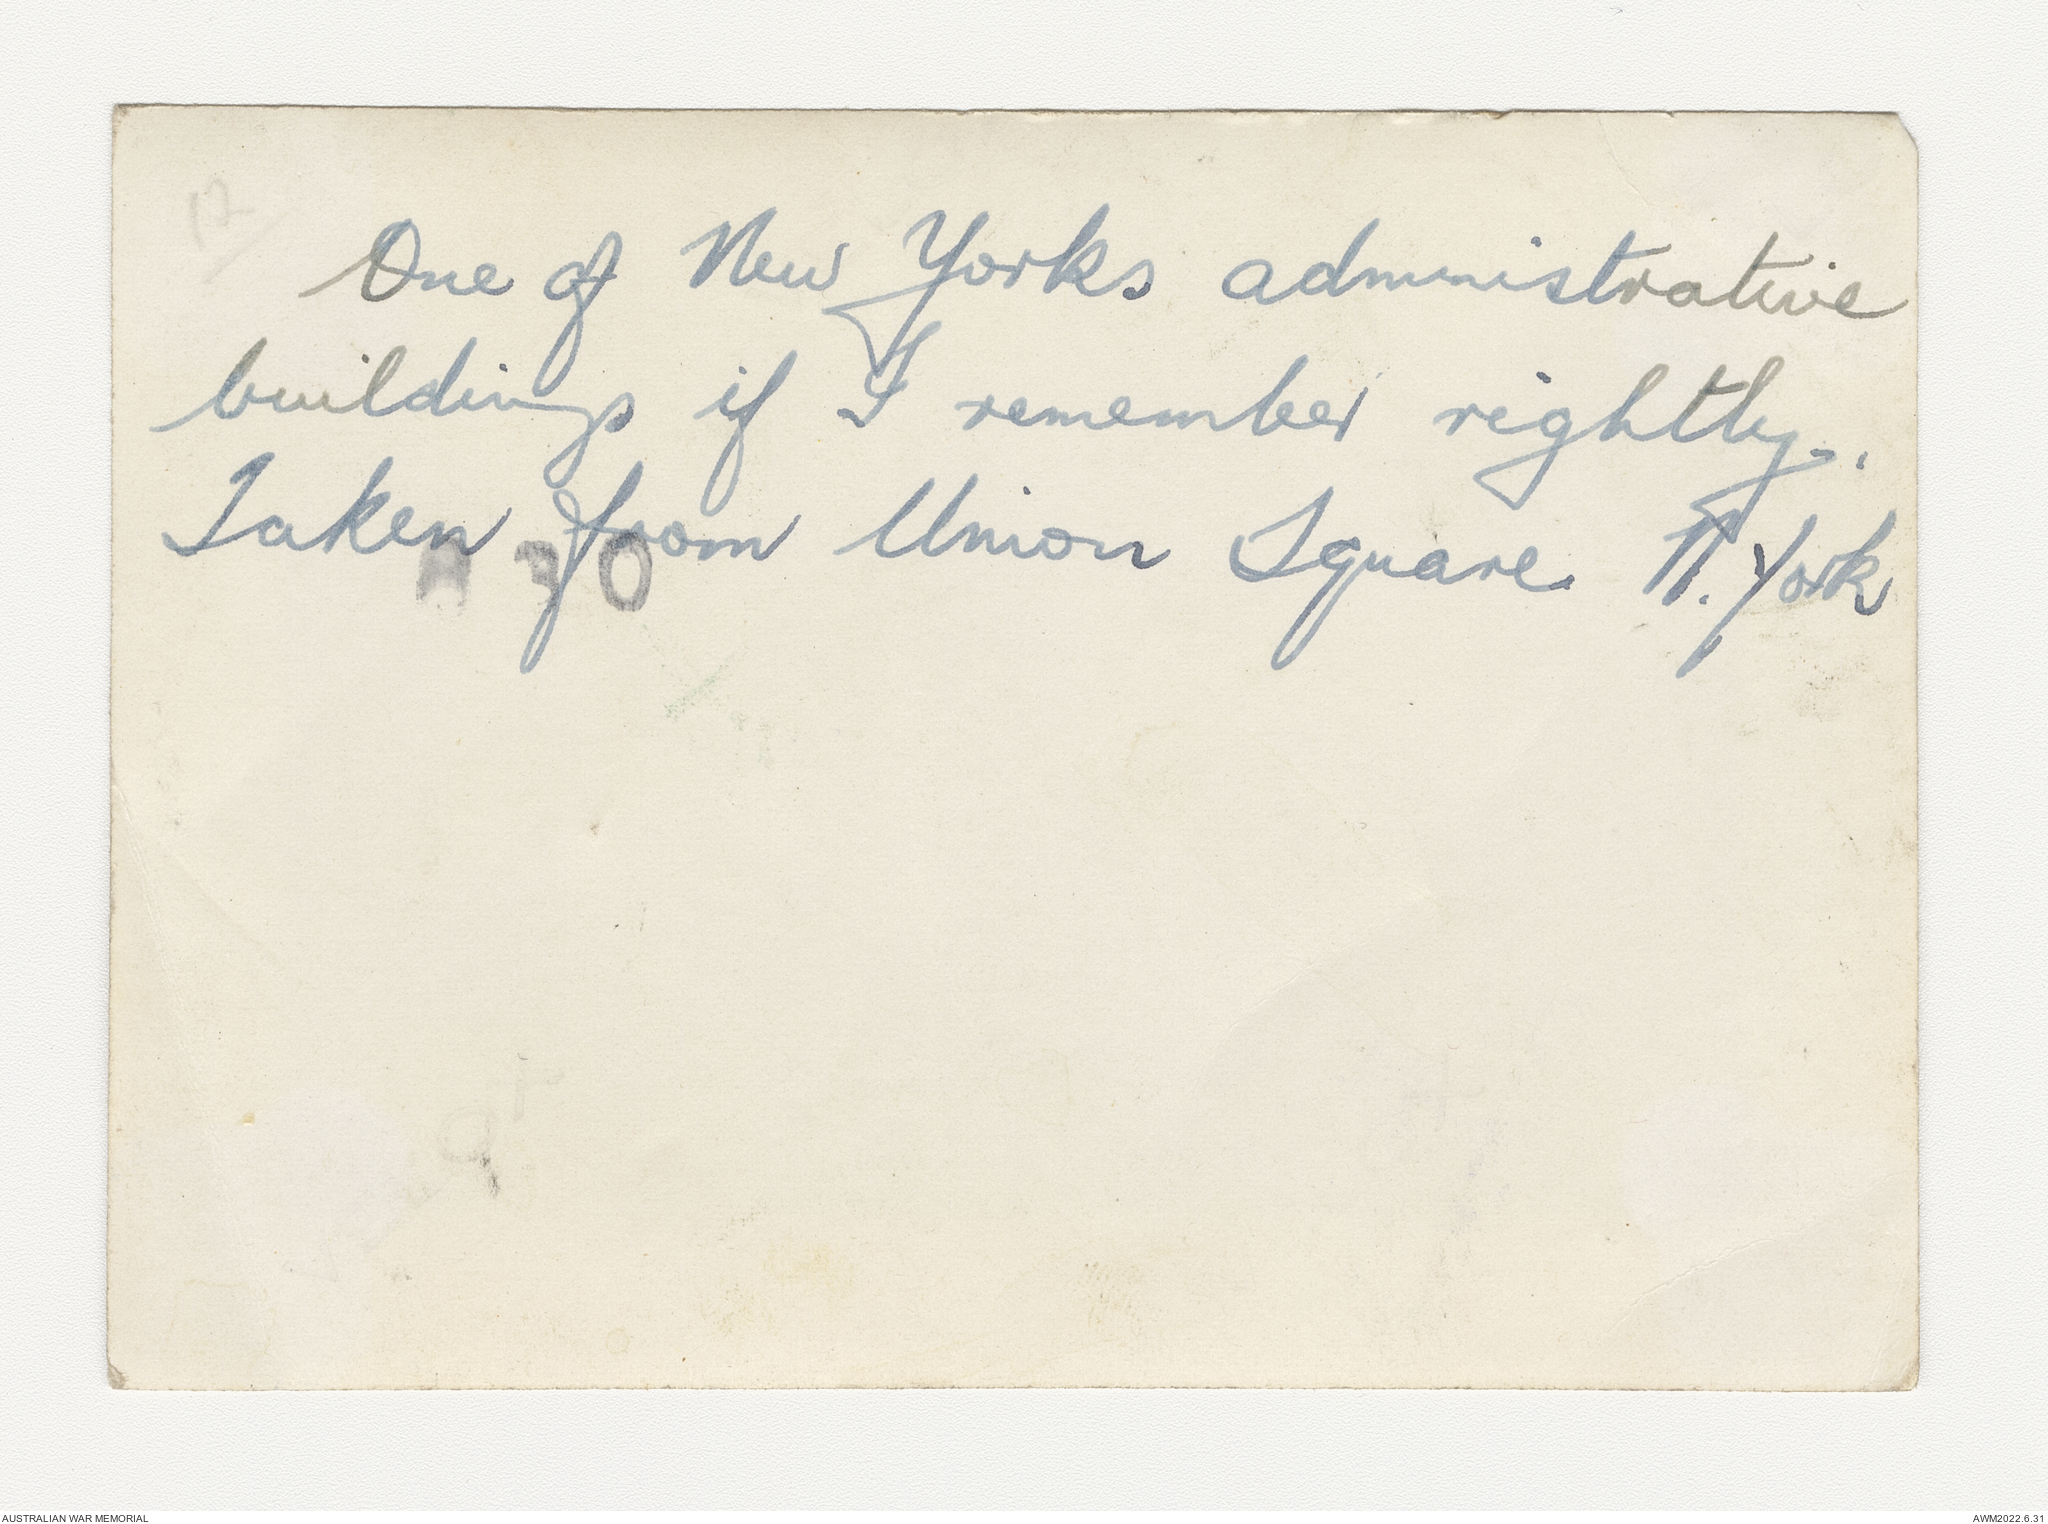 12
One of New Yorks administrative
buildings if I remember rightly.
Taken from Union Square N. York
AUSTRALIAN WAR MEMORIAL
AWM2022.6.31